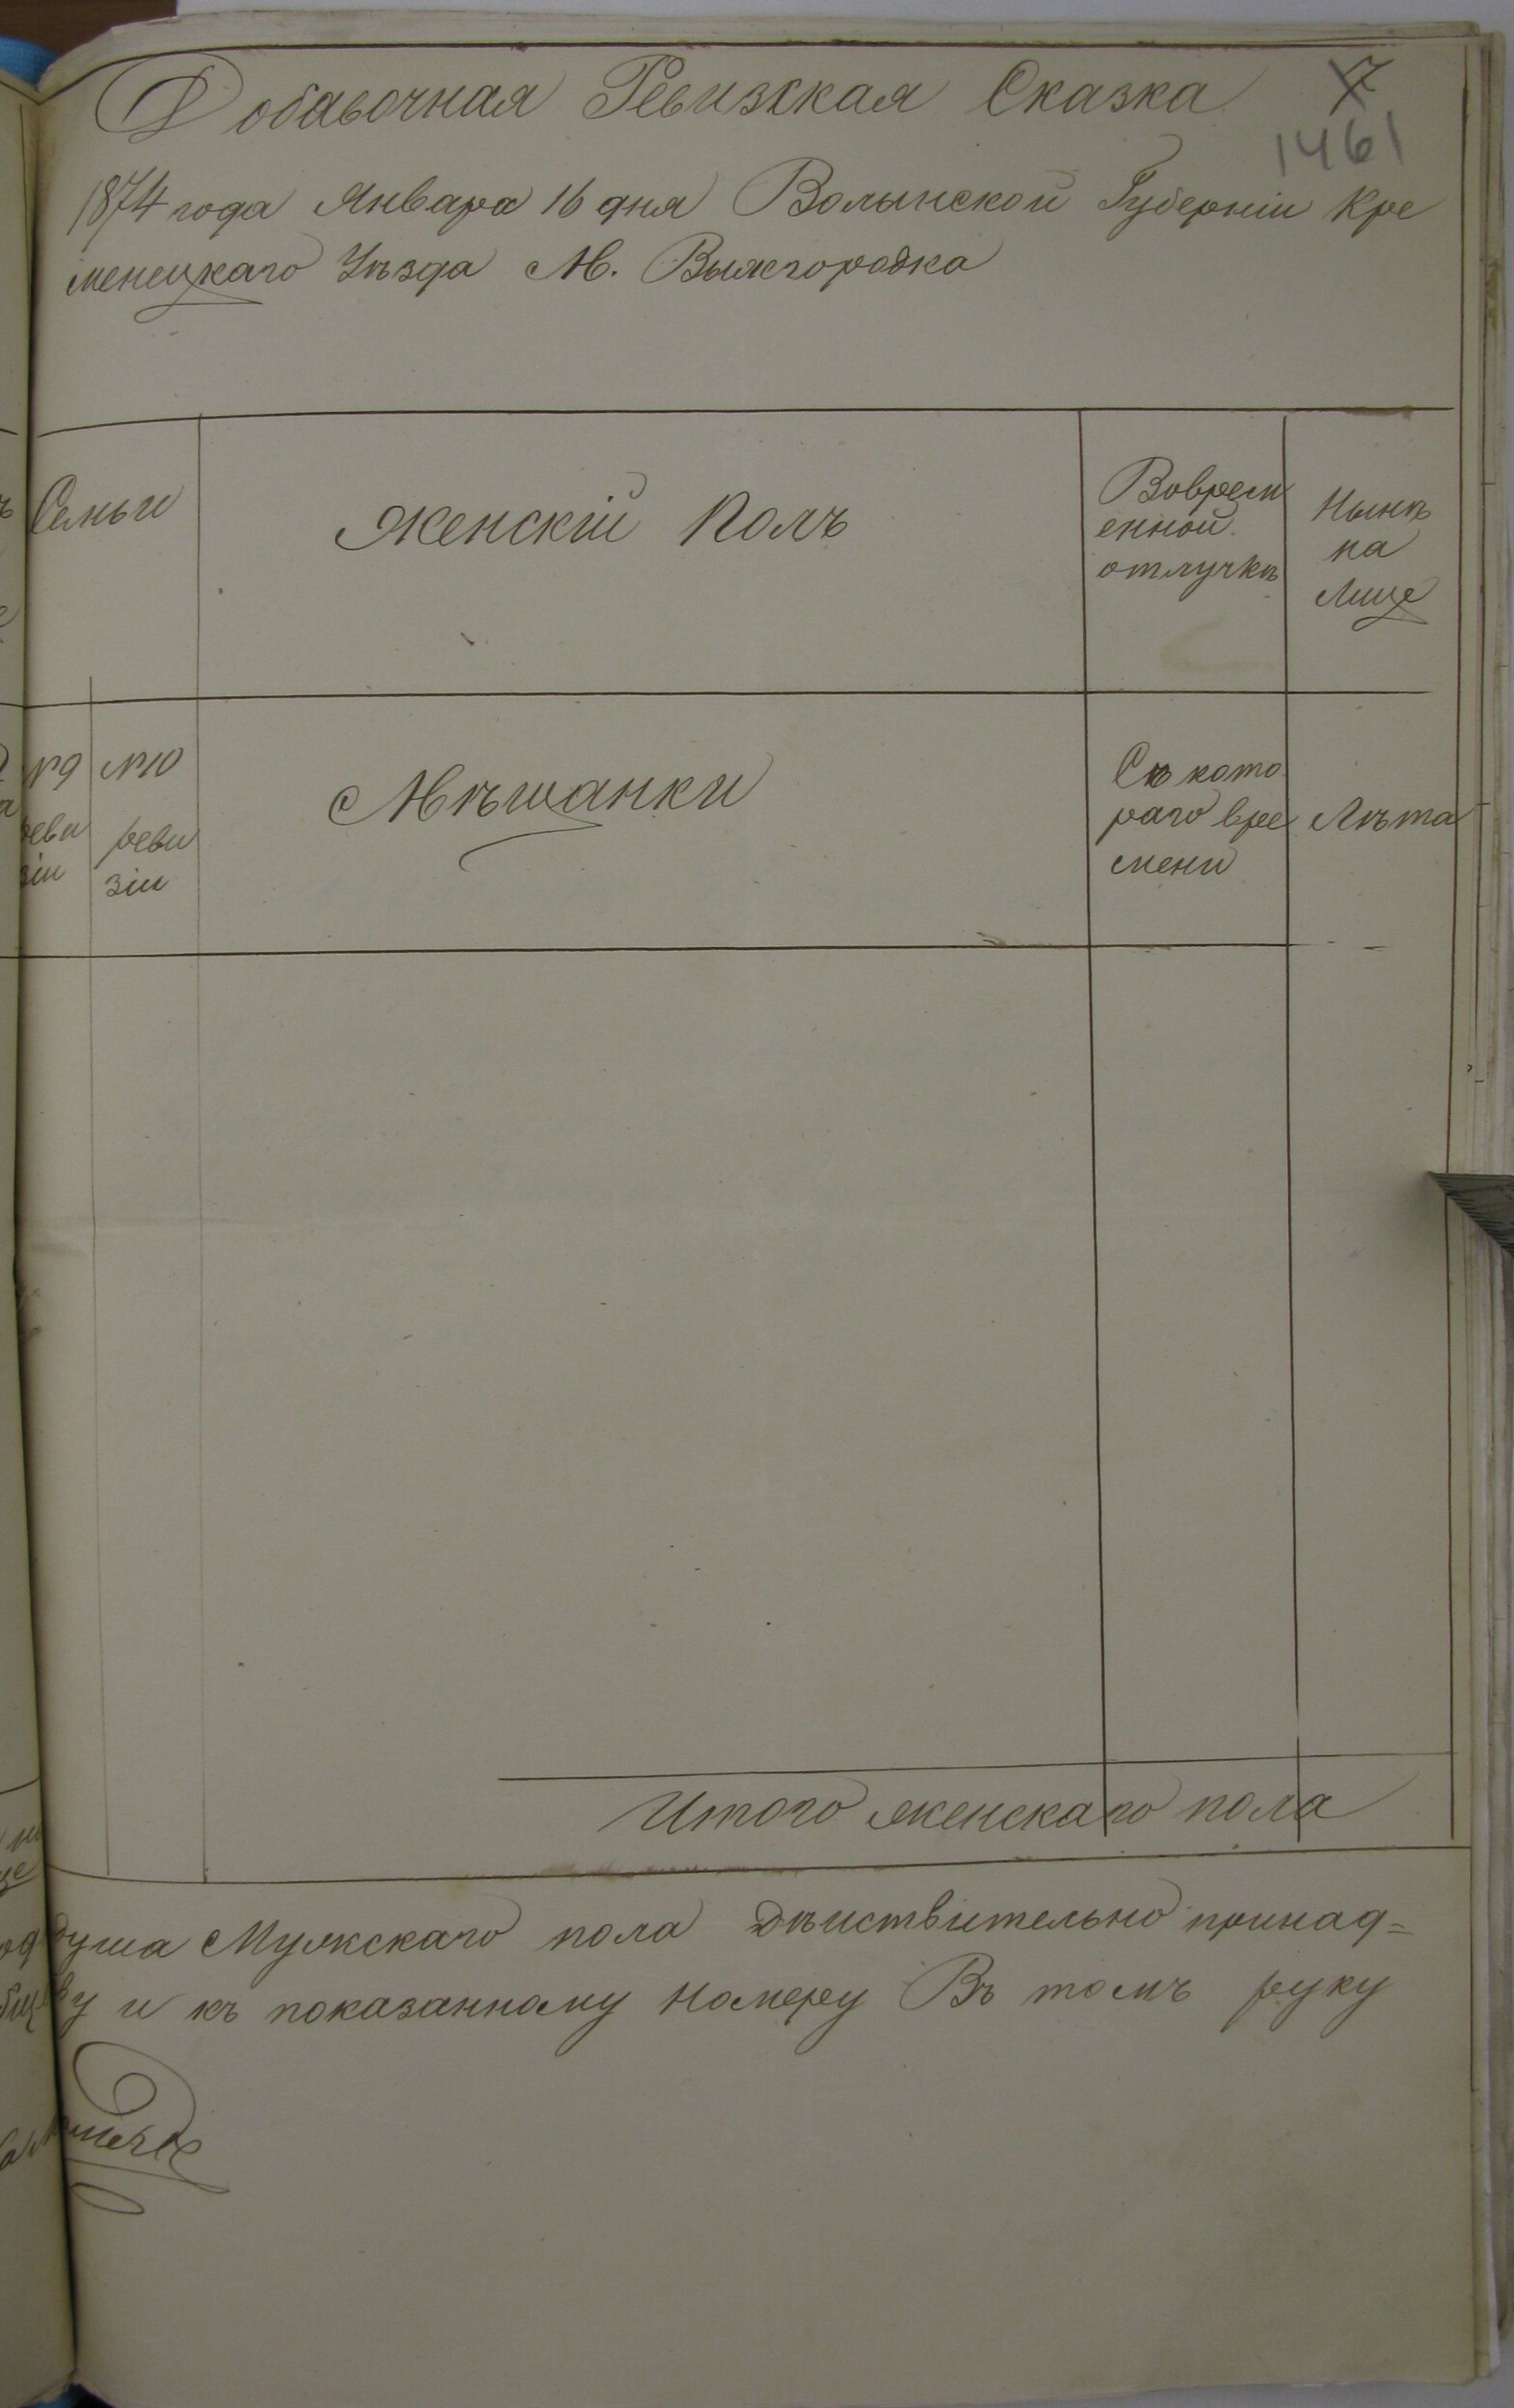 Добавочная Ревизская Сказка 7
1461
1874 года Января 16 дня Волынской Губерніи Кре
менецкаго Уѣзда М. Вышгородка
Семьи
Женскій Полъ
Воврем
енной
отлучкѣ
Нынѣ
на
Лице
№9
реви
зіи
№10
реви
зіи
Мѣщанки
Съ кото
раго вре
мени
Лѣта
Итого женскаго пола
душа Мужскаго пола дѣиствительно принад=
у и къ показанному номеру Въ томъ руку